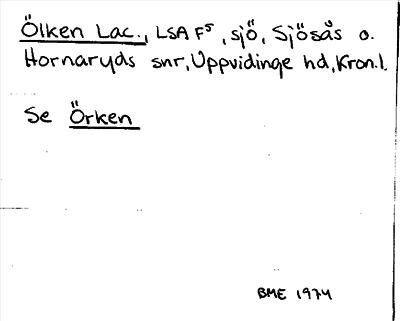 Ölken Lac., LSA F⁵, sjö, Sjösås o.
Hornaryds snr, Uppvidinge hd, Kron.l.
Se Örken
BME 1974